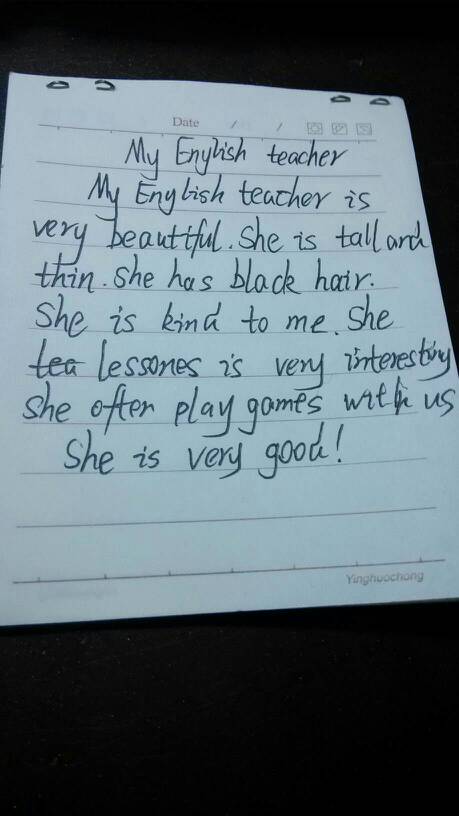 Date / /
My English teacher
My English teacher is
very beautiful. She is tall and
thin. She has black hair.
She is kind to me. She
tea lessones is very interesting
She often play games with us
She is very good!
Yinghuochong